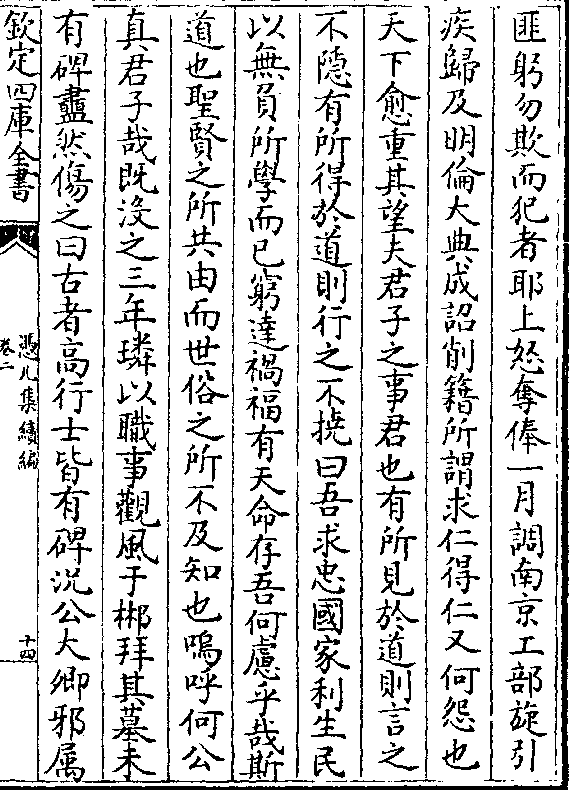 匪躬勿欺而犯者耶上怒奪俸一月調南京工部旋引
疾歸及明倫大典成詔削籍所謂求仁得仁又何怨也
天下愈重其望夫君子之事君也有所見於道則言之
不隱有所得於道則行之不撓曰吾求忠國家利生民
以無負所學而已窮達禍福有天命存吾何慮乎哉斯
道也聖賢之所共由而世俗之所不及知也嗚呼何公
真君子哉既沒之三年璘以職事觀風于郴拜其墓未
有碑衋然傷之曰古者高行士皆有碑況公大卿邪属
欽定四庫全書
憑几集續編
卷二
十四